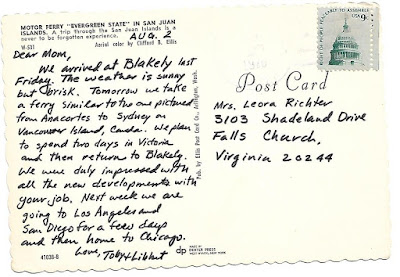 MOTOR FERRY "EVERGREEN STATE" IN SAN JUAN
ISLANDS. A trip through the San Juan Islands is a
never to be forgotten experience.
W-531
Aerial color by Clifford B. Ellis
AUG 2
Dear Mom,
We arrived at Blakely last
Friday. The weather is sunny
but brisk. Tomorrow we take
a ferry similar to the one pictured
from Anacortes to Sydney on
Vancouver Island, Canada. We plan
to spend two days in Victoria
and then return to Blakely.
We were duly impressed with
all the new developments with
your job. Next week we are
going to Los Angeles and
San Diego for a few days
and then home to Chicago.
Love, Toby +
41038-B
Pub. by Ellis Post Card Co., Arlington, Wash.
DEXTER PRESS
WEST NYACK, NEW YORK
Post Card
USA 9c
Mrs. Leora Richter
3103 Shadeland Drive
Falls Church,
Virginia 20244